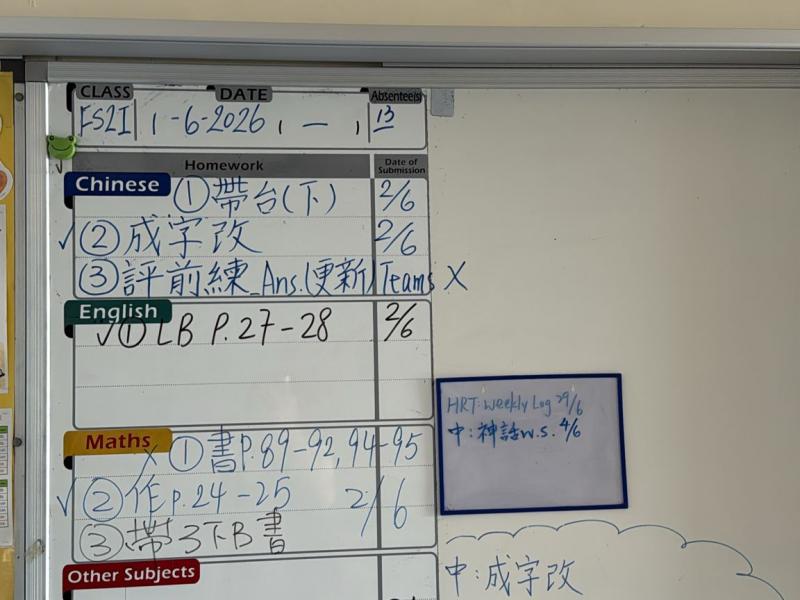 CLASS DATE Absentee(s)
1-6-2026, — , 13
Homework Date of Submission
Chinese ①帶台(下) 2/6
✓②成字改 2/6
③評前練_Ans.(更新) Teams X
English
✓① P.27-28 2/6
Maths X ①書P.89-92,94-95
✓②作p.24-25 2/6
③帶3下B書
Other Subjects
HRT: Weekly Log 29/6
中:神話w.s. 4/6
中:成字改